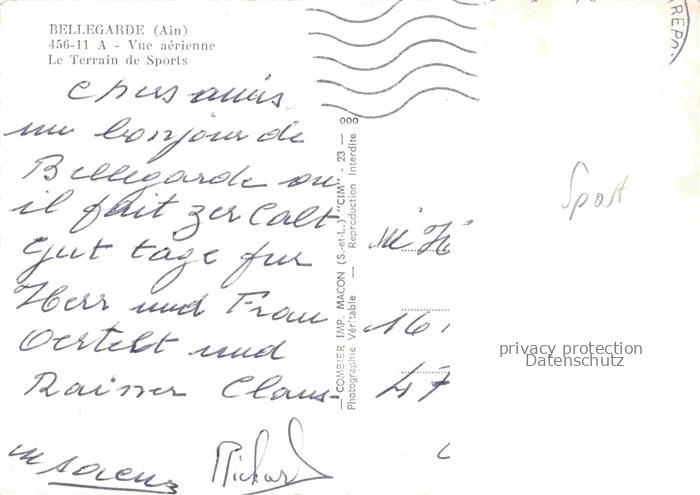 BELLEGARDE (Ain)
456-11 A - Vue aérienne
Le Terrain de Sports
chers amis
un bonjour de
Bellegarde ou
il fait zer Calt
Gut tage fur
Herr und Frau
Oertelt und
Raisser Claus-
Richard
COMBIER IMP. MACON (S.-et-L.) "CIM" - 23 -
Photographie Véritable - Reproduction Interdite
ooo
Sport
16
47
privacy protection
Datenschutz